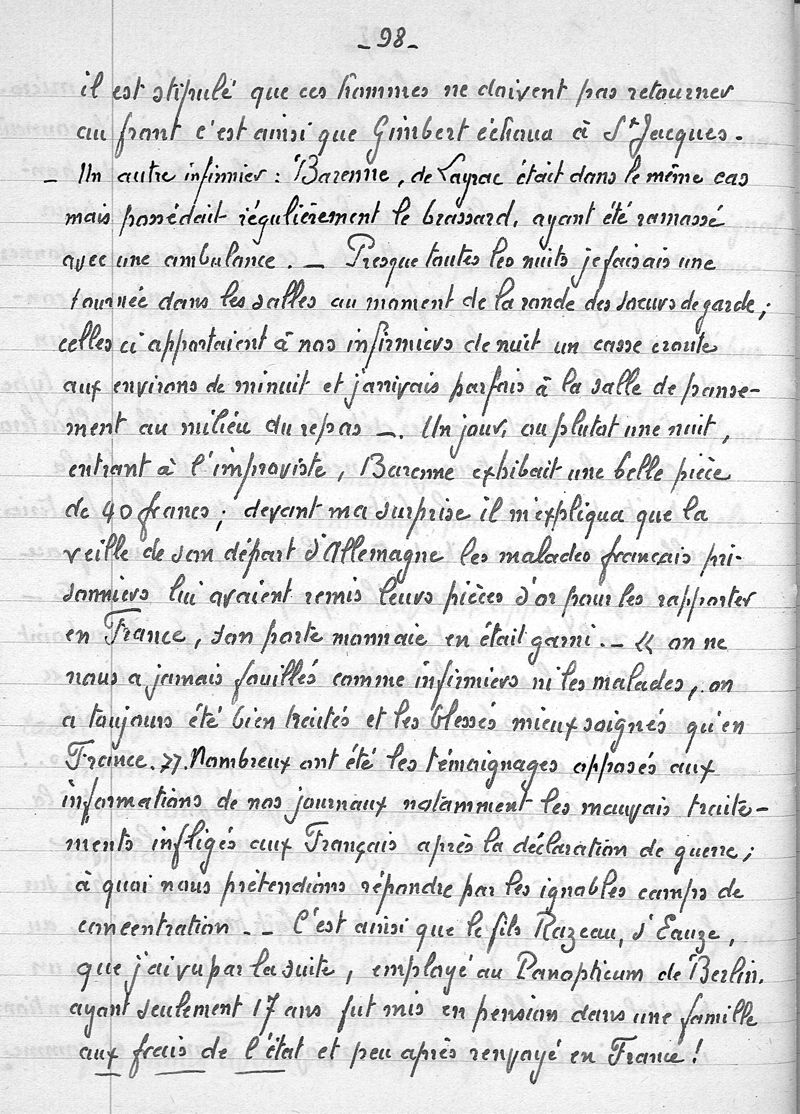 - 98 -
il est stipulé que ces hommes ne doivent pas retourner
au front c'est ainsi que Gimbert échoua à St Jacques.
- Un autre infirmier : Barenne, de Layrac était dans le même cas
mais possédait régulièrement le brassard, ayant été ramassé
avec une ambulance. - Presque toutes les nuits je faisais une
tournée dans les salles au moment de la ronde des sœurs de garde ;
celles ci apportaient à nos infirmiers de nuit un casse croute
aux environs de minuit et j'arrivais parfois à la salle de panse-
ment au milieu du repas -. Un jour, ou plutot une nuit,
entrant à l'improviste, Barenne exhibait une belle pièce
de 40 francs ; devant ma surprise il m'expliqua que la
veille de son départ d'Allemagne les malades français pri-
sonniers lui avaient remis leurs pièces d'or pour les rapporter
en France, son porte monnaie en était garni. - « on ne
nous a jamais fouillés comme infirmiers ni les malades, on
a toujours été bien traités et les blessés mieux soignés qu'en
France. ». Nombreux ont été les témoignages opposés aux
informations de nos journaux notamment les mauvais traite-
ments infligés aux Français après la déclaration de guerre ;
à quoi nous prétendions répondre par les ignobles camps de
concentration - - C'est ainsi que le fils Razeau, d'Eauze,
que j'ai vu par la suite, employé au Panopticum de Berlin.
ayant seulement 17 ans fut mis en pension dans une famille
aux frais de l'état et peu après renvoyé en France !